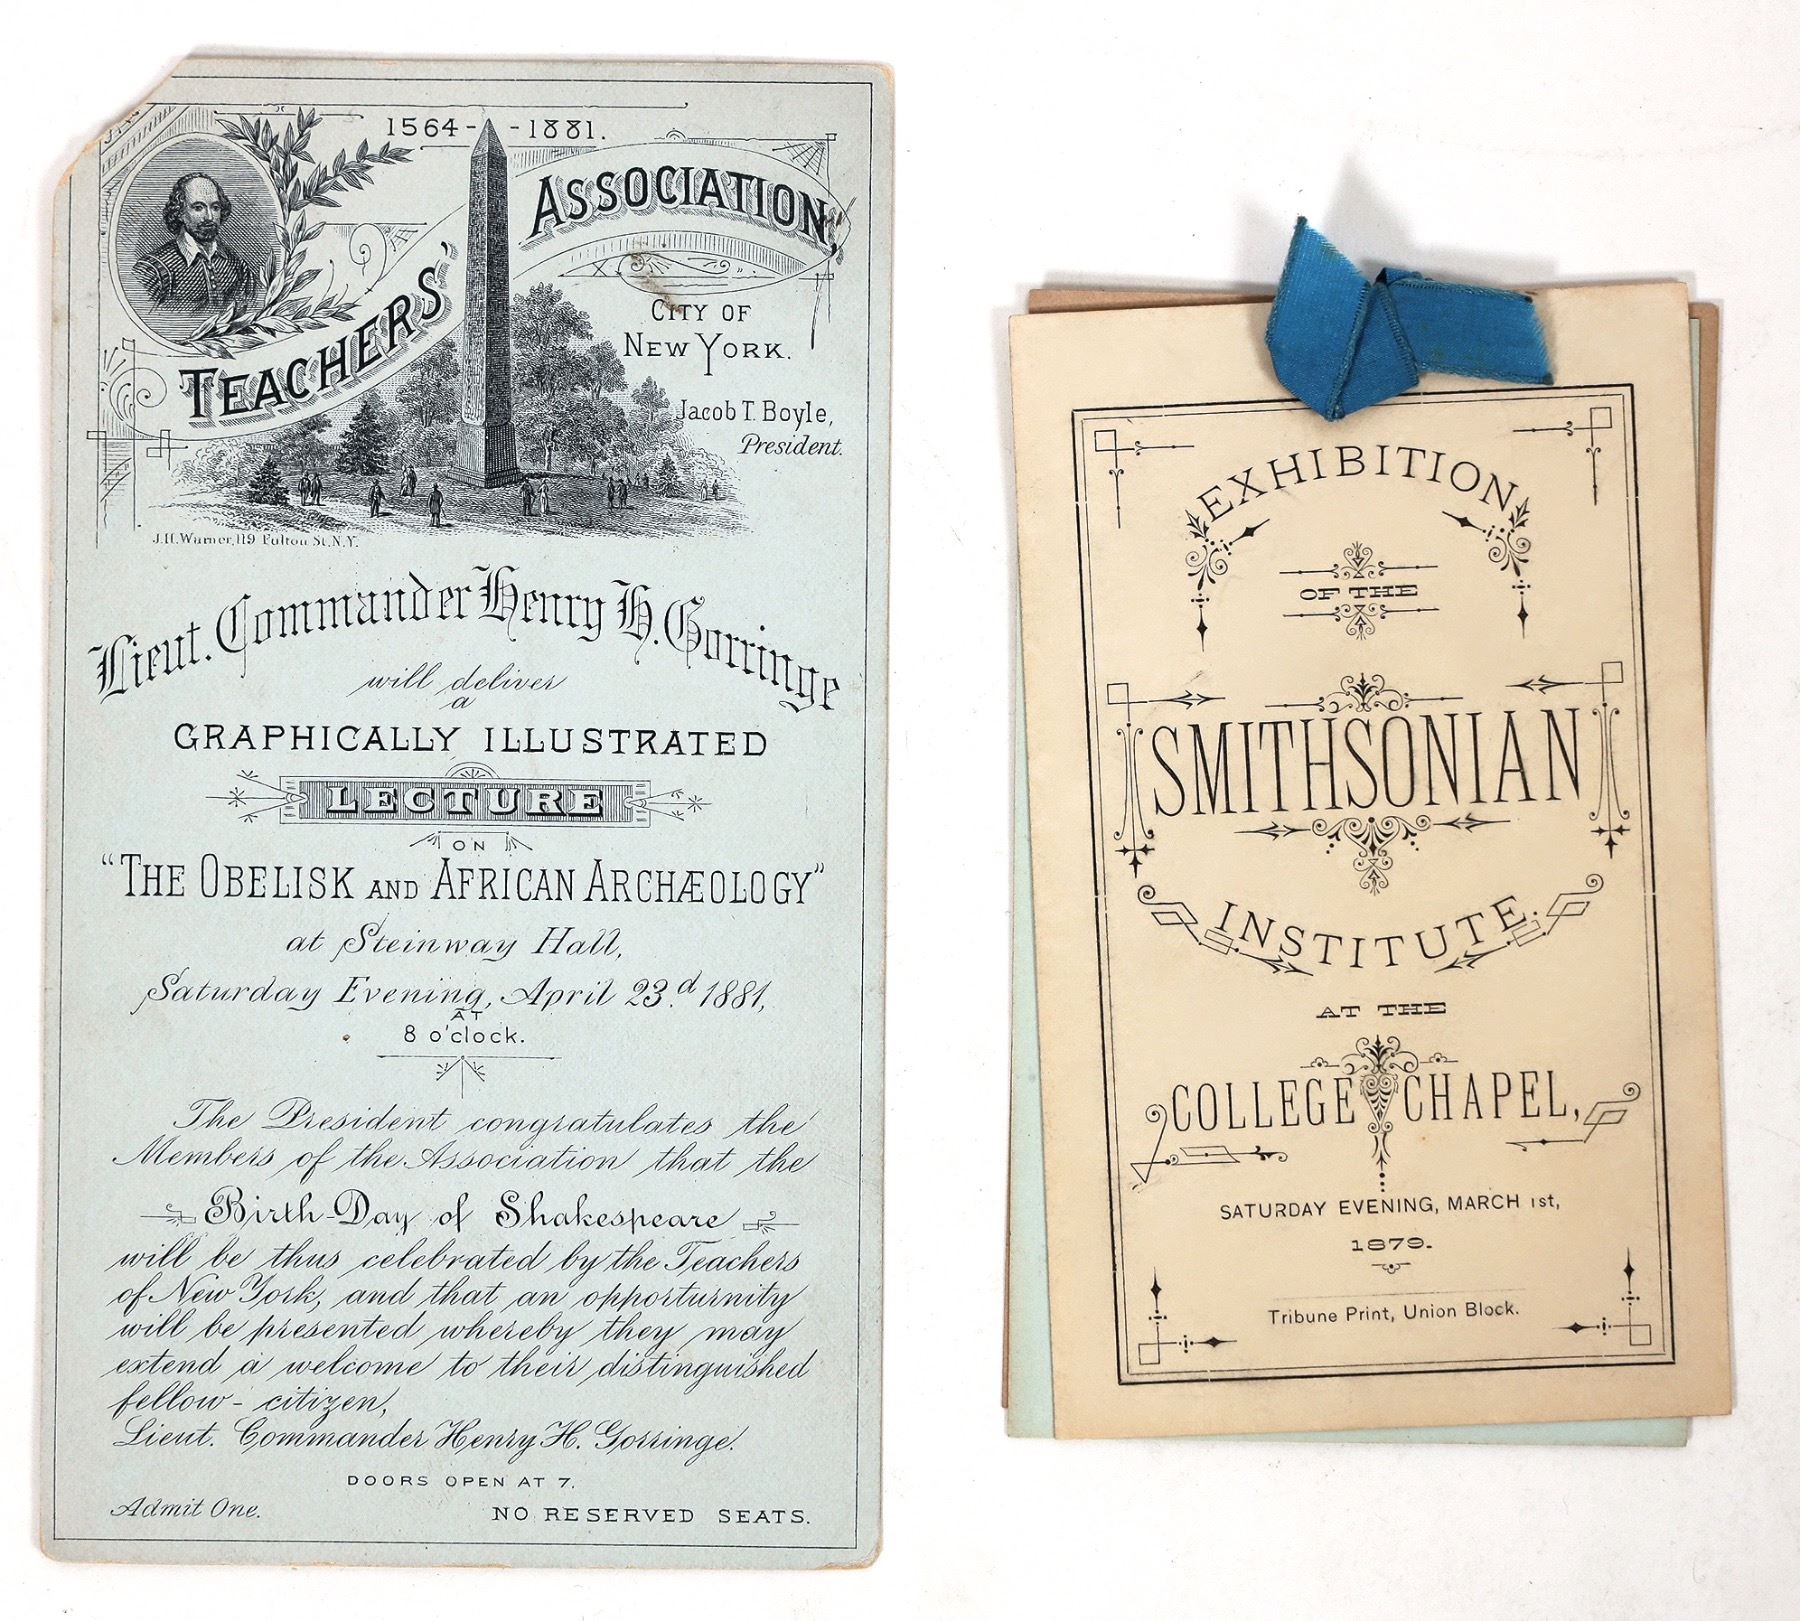 1564 - - 1881.
TEACHERS' ASSOCIATION,
CITY OF
NEW YORK.
Jacob T. Boyle,
President.
J.H. Warner, 119 Fulton St. N.Y.
Lieut. Commander Henry H. Gorringe
will deliver
a
GRAPHICALLY ILLUSTRATED
LECTURE
ON
"THE OBELISK AND AFRICAN ARCHÆOLOGY"
at Steinway Hall,
Saturday Evening, April 23.d 1881,
AT
8 o'clock.
The President congratulates the
Members of the Association that the
Birth-Day of Shakespeare
will be thus celebrated by the Teachers
of New York, and that an opportunity
will be presented whereby they may
extend a welcome to their distinguished
fellow-citizen,
Lieut. Commander Henry H. Gorringe.
DOORS OPEN AT 7.
Admit One.
NO RESERVED SEATS.
EXHIBITION
OF THE
SMITHSONIAN
INSTITUTE.
AT THE
COLLEGE CHAPEL,
SATURDAY EVENING, MARCH 1st,
1879.
Tribune Print, Union Block.